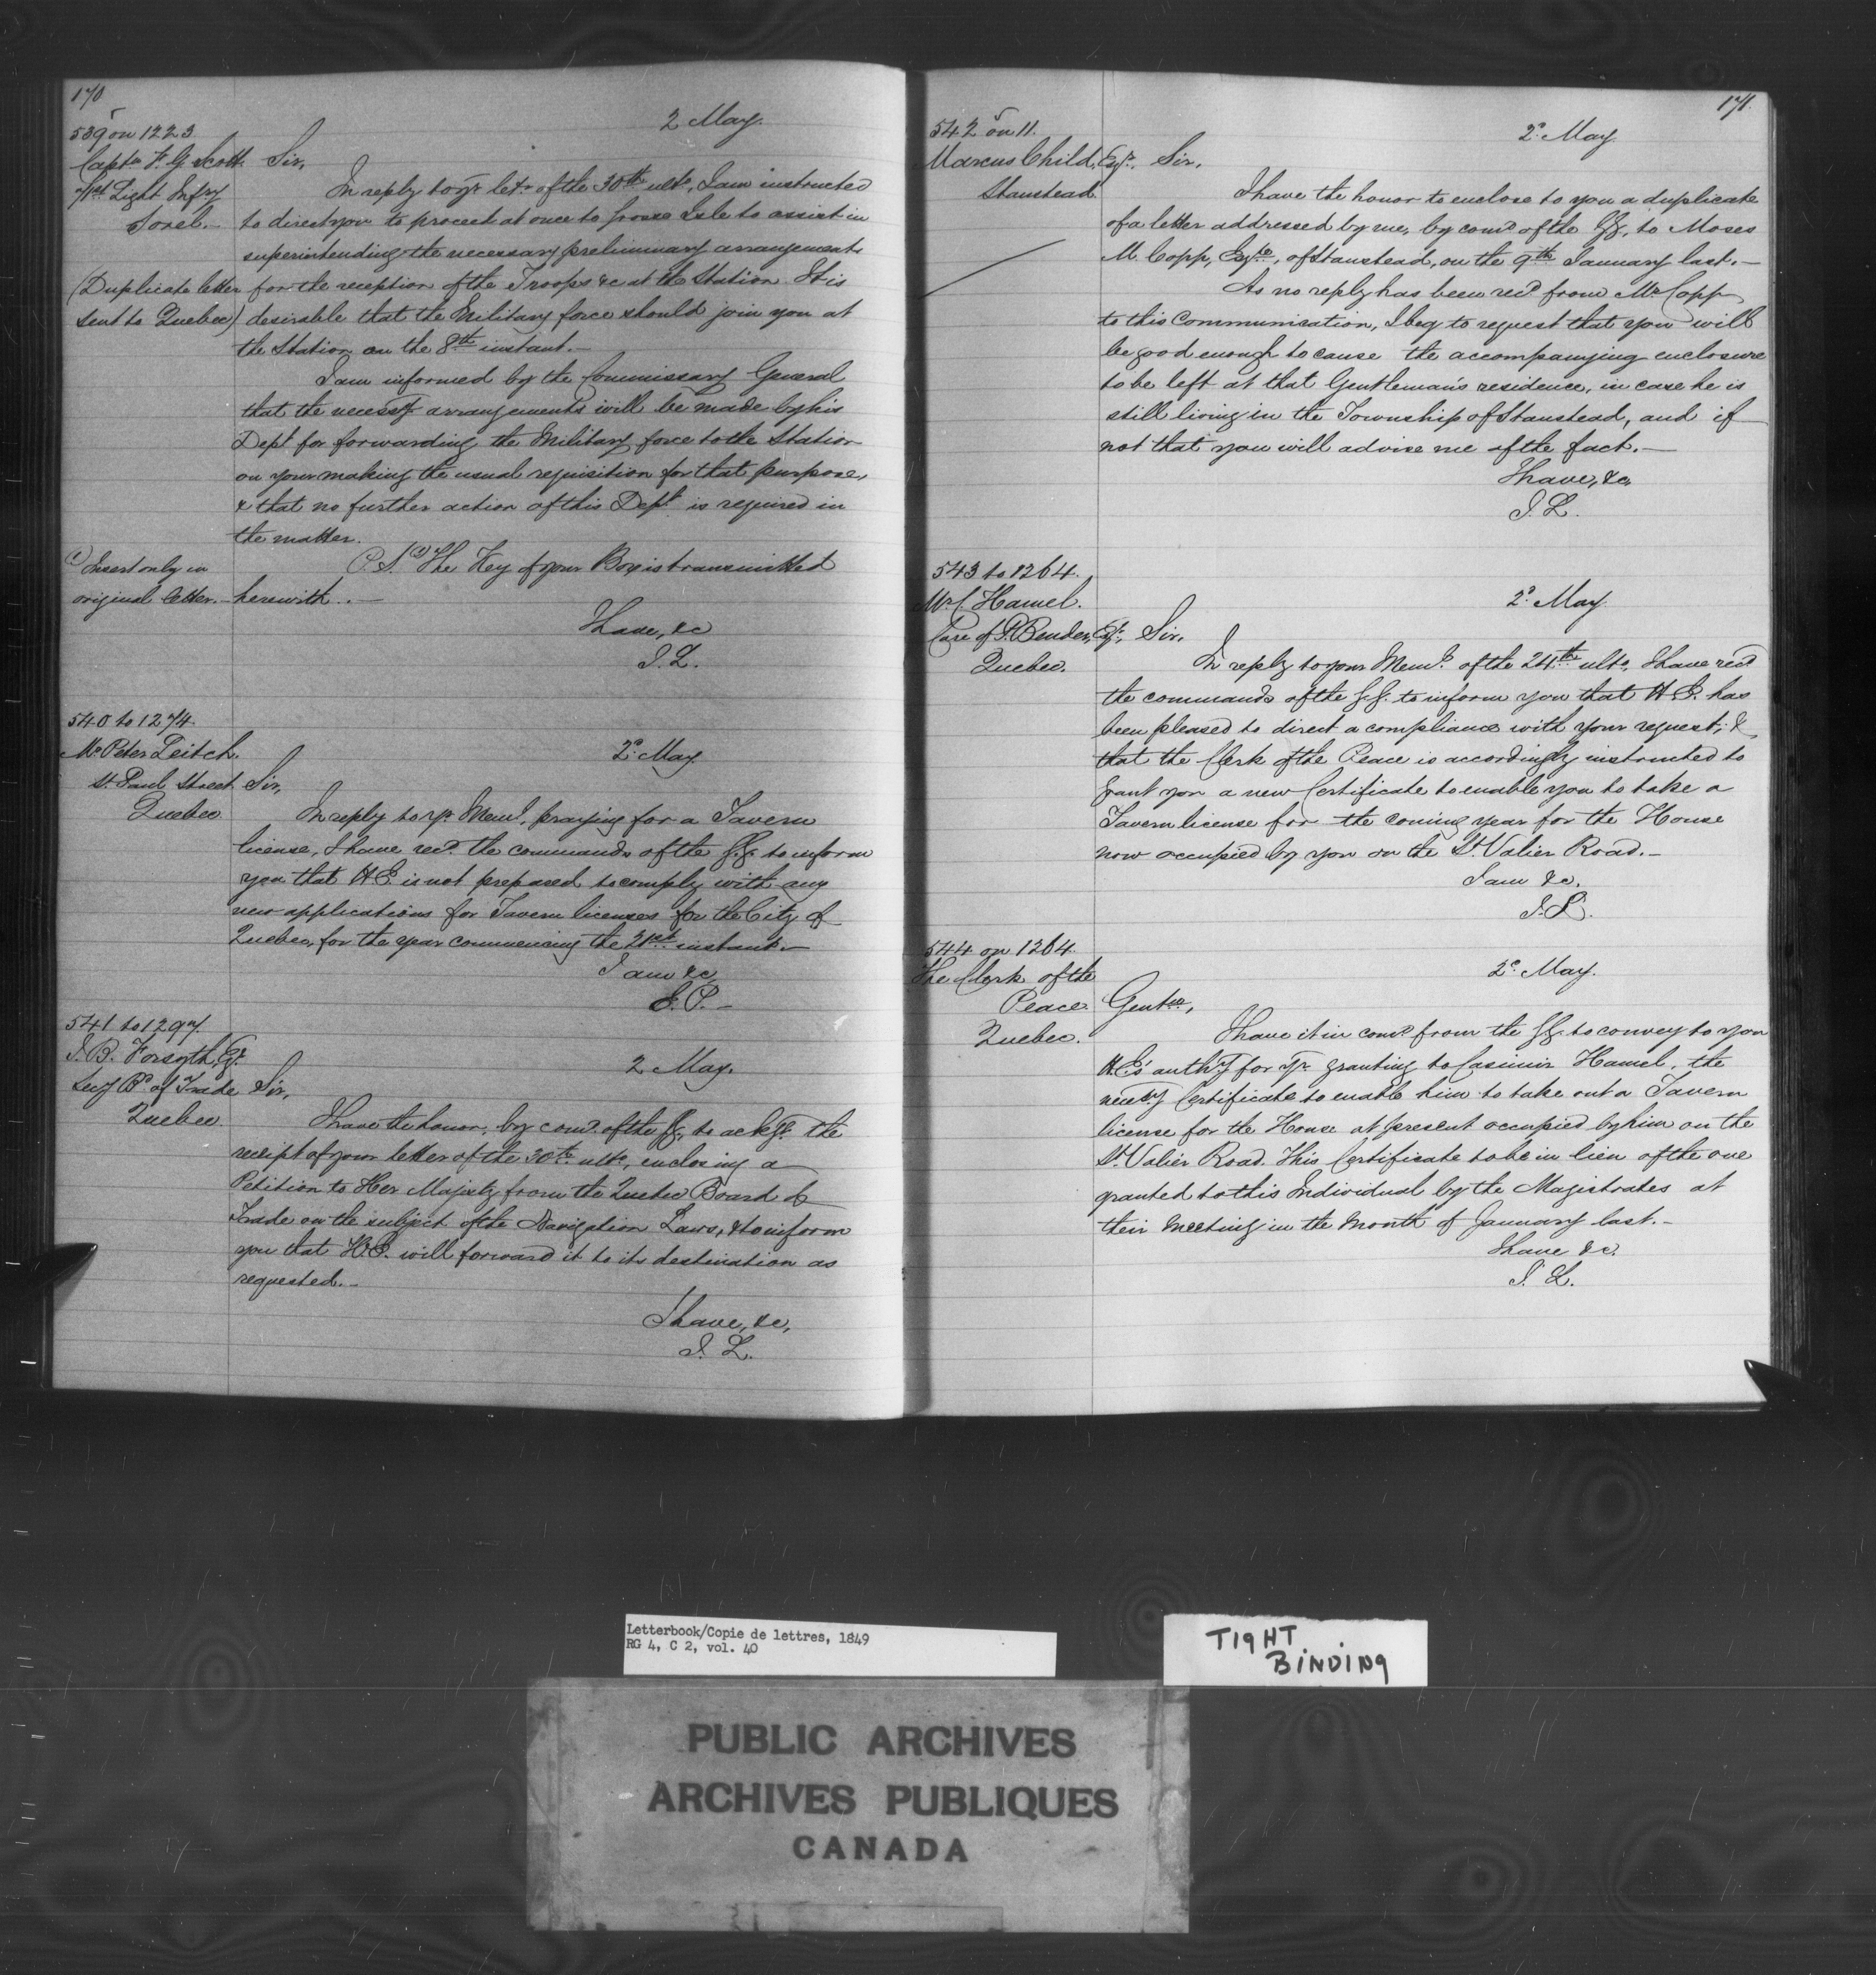 170
539 on 1223
2 May.
Captn F. G. Scott Sir,
71st Light Infy In reply to yr letr of the 30th ulto, I am instructed
Sorel. to direct you to proceed at once to Grosse Isle to assist in
superintending the necessary preliminary arrangements
(Duplicate letter for the reception of the Troops &c at the Station. It is
sent to Quebec) desirable that the Military force should join you at
the Station on the 8th instant.—
I am informed by the Commissary General
that the necessy arrangements will be made by his
Dept for forwarding the Military force to the Station
on your making the usual requisition for that purpose,
& that no further action of this Dept is required in
the matter.
(1) Insert only in P.S. (1) The Key of your Box is transmitted
original letter.— herewith.—
I have, &c
J. L.
540 to 1274.
Mr Peter Leitch. 2d May
St. Paul Street Sir,
Quebec In reply to yr Meml, praying for a Tavern
license, I have recd the commands of the G.G. to inform
you that H.E. is not prepared to comply with any
new applications for Tavern licenses for the City of
Quebec, for the year commencing the 21st instant.—
I am &c
E. P.—
541 to 1297.
J. B. Forsyth, Esqr
2 May.
Secy Bd of Trade Sir,
Quebec I have the honor, by comd of the GG, to ackge the
receipt of your letter of the 30th ulto, enclosing a
Petition to Her Majesty from the Quebec Board of
Trade on the subject of the Navigation Laws, & to inform
you that H.E. will forward it to its destination as
requested.—
I have, &c,
J. L.
171.
542 on 11.
2d May
Marcus Child, Esqr, Sir,
Stanstead I have the honor to enclose to you a duplicate
of a letter addressed by me, by comd of the GG, to Moses
M. Copp, Esqre, of Stanstead, on the 9th January last.—
As no reply has been recd from Mr Copp
to this Communication, I beg to request that you will
be good enough to cause the accompanying enclosure
to be left at that Gentleman's residence, in case he is
still living in the Township of Stanstead, and if
not that you will advise me of the fact.—
I have, &c,
J. L.
543 to 1264.
Mr C. Hamel. 2d May
Care of P. Bender, Esqr, Sir,
Quebec. In reply to your Meml of the 24th ulto, I have recd
the commands of the G.G. to inform you that H.E. has
been pleased to direct a compliance with your request; &
that the Clerk of the Peace is accordingly instructed to
grant you a new Certificate to enable you to take a
Tavern license for the coming year for the House
now occupied by you on the St. Valier Road.—
I am &c.
J. L.
544 on 1264.
The Clerk of the 2d May.
Peace Gentn,
Quebec. I have it in comd from the GG. to convey to you
H.E's authy for yr granting to Casimir Hamel, the
necessy Certificate to enable him to take out a Tavern
license for the House at present occupied by him on the
St. Valier Road. This Certificate to be in lieu of the one
granted to this Individual by the Magistrates at
their meeting in the month of January last.—
I have &c.
J. L.
Letterbook/Copie de lettres, 1849
RG 4, C 2, vol. 40
TIGHT
BINDING
PUBLIC ARCHIVES
ARCHIVES PUBLIQUES
CANADA